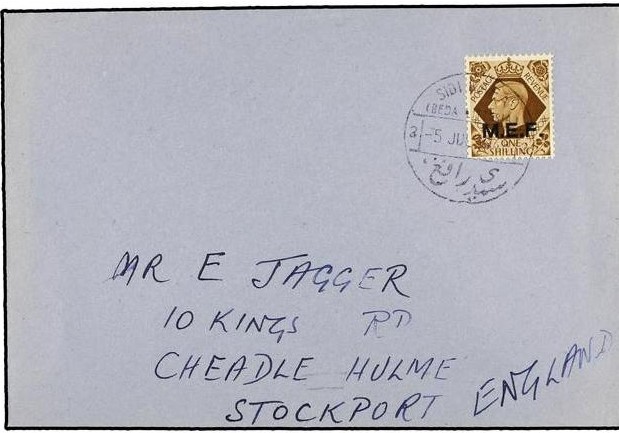 POSTAGE REVENUE
M.E.F
ONE
SHILLING
SIDI
(BEDA
a -5 JU
سيدي رافع
MR E JAGGER
10 KINGS RD
CHEADLE HULME
STOCKPORT ENGLAND